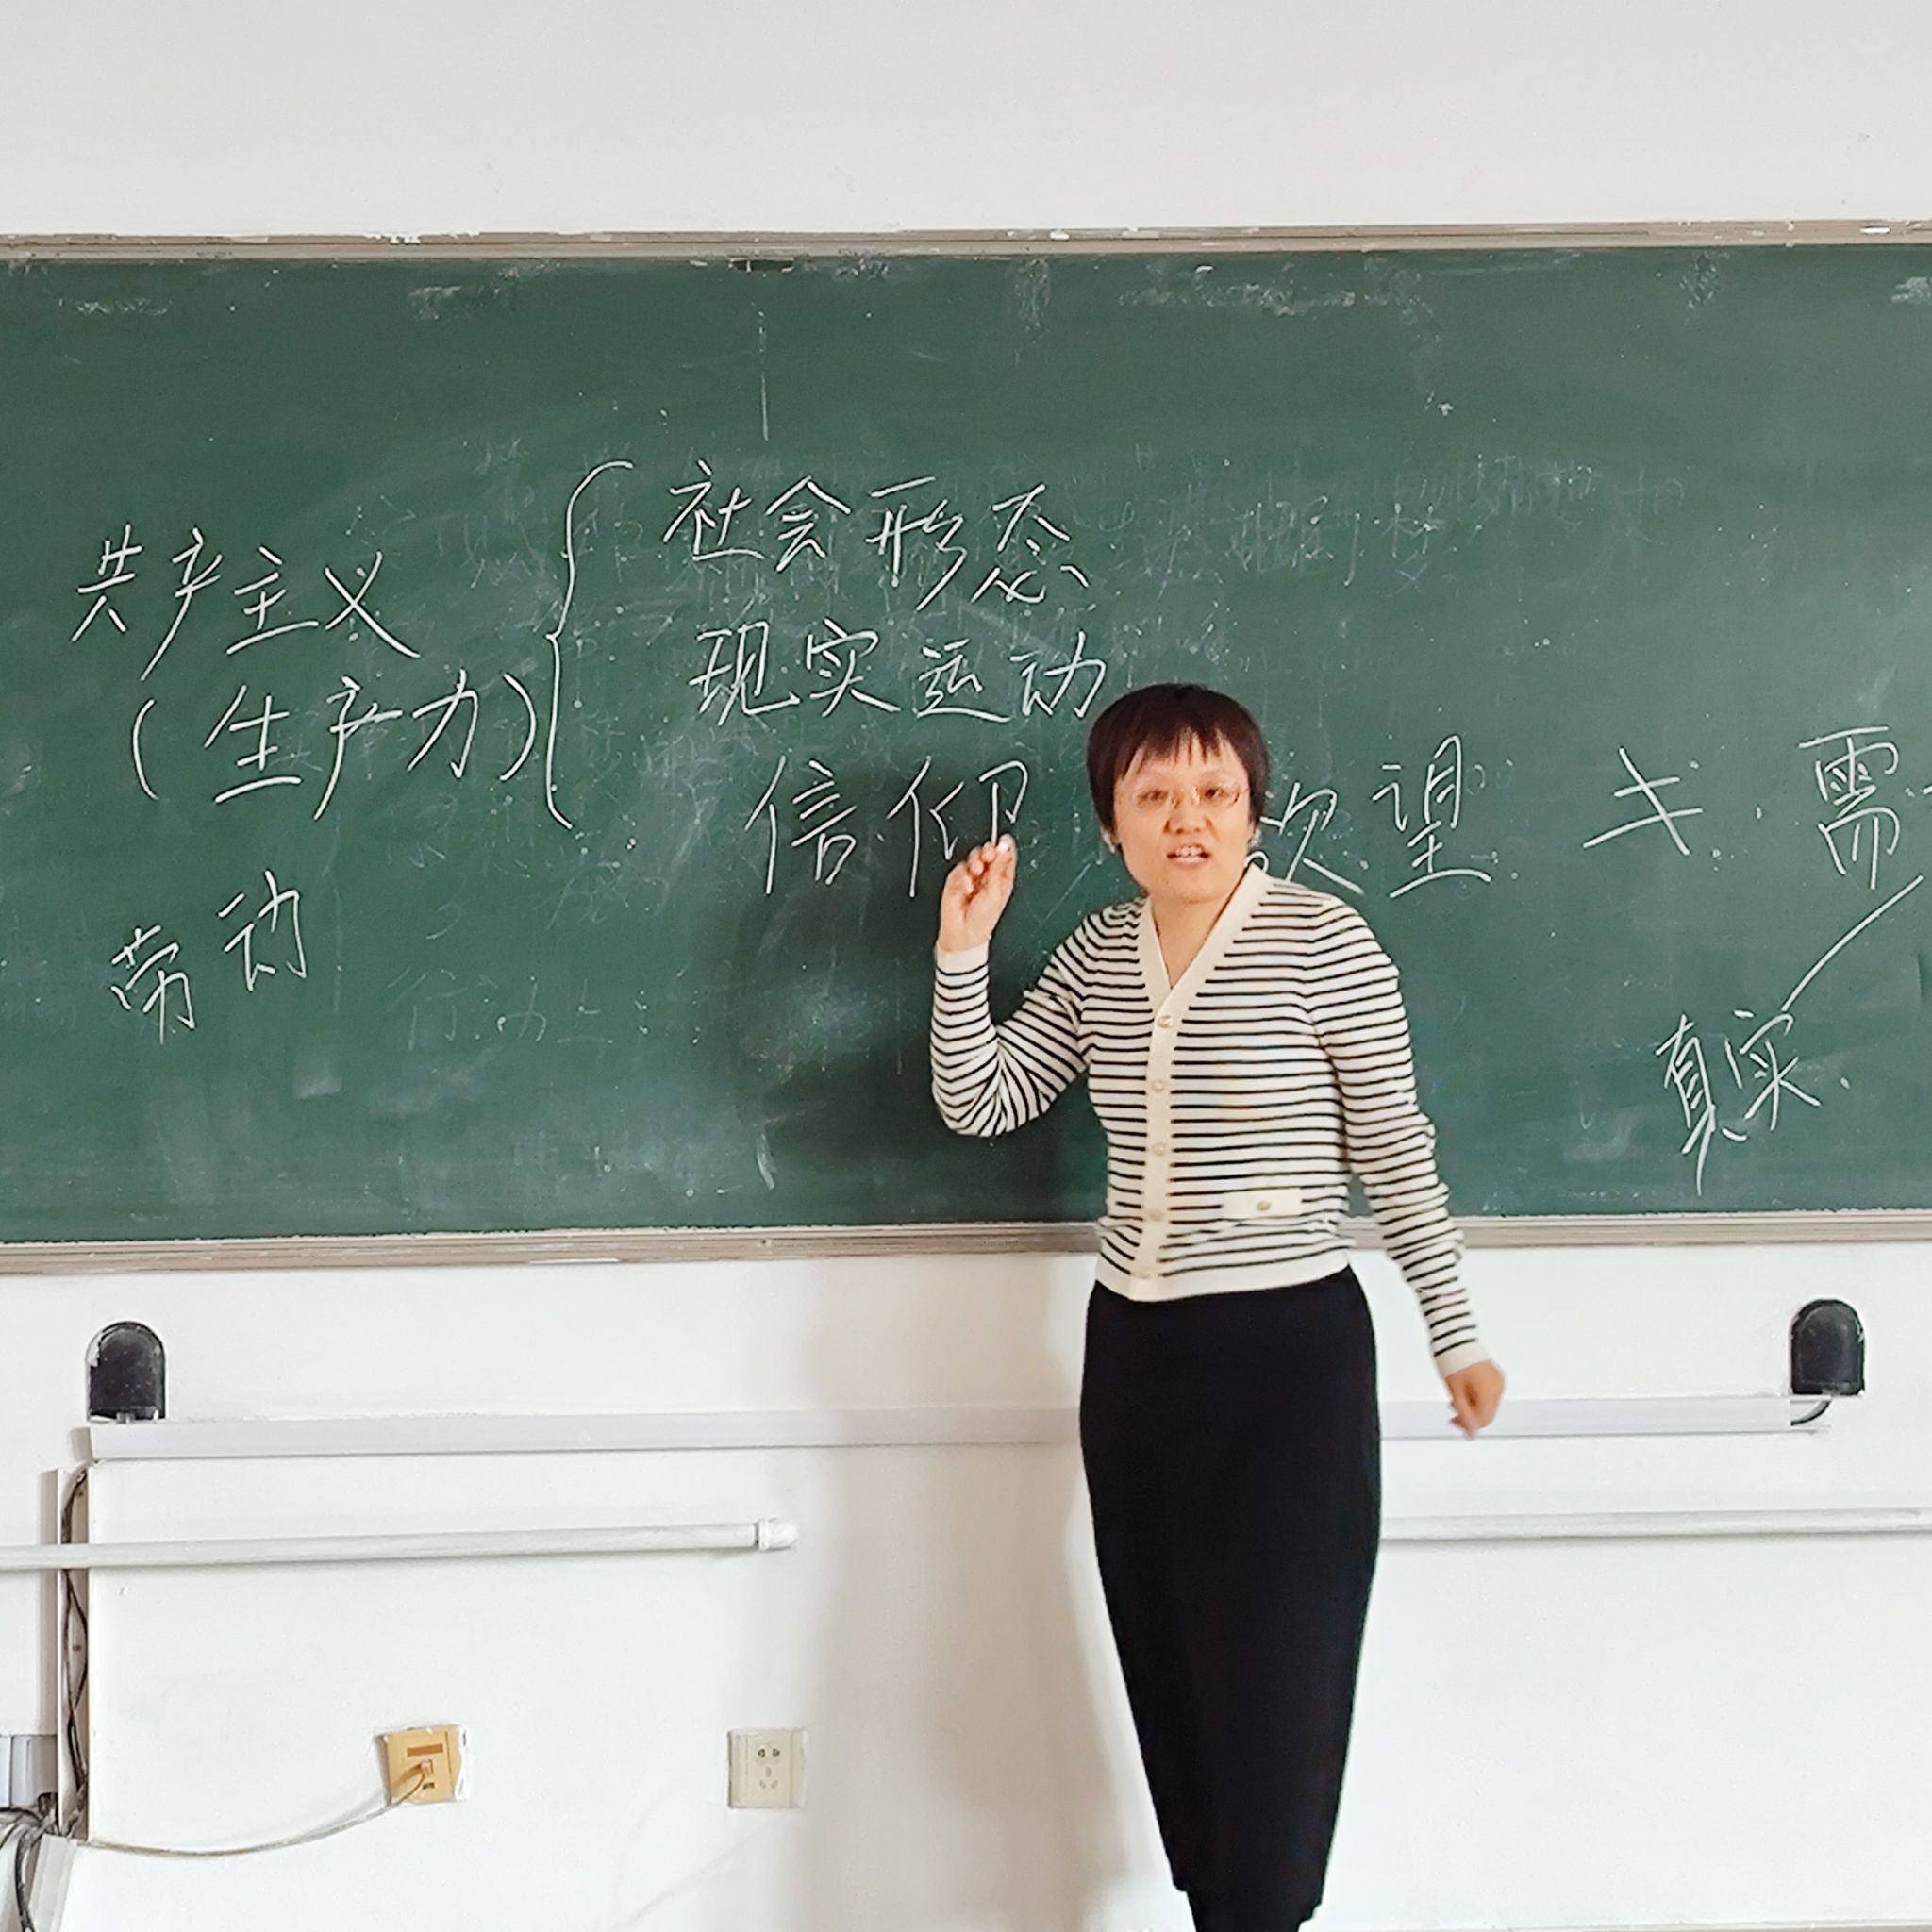 共产主义
(生产力)
社会形态
现实运动
信仰
劳动
欲望 ≠ 需
真实